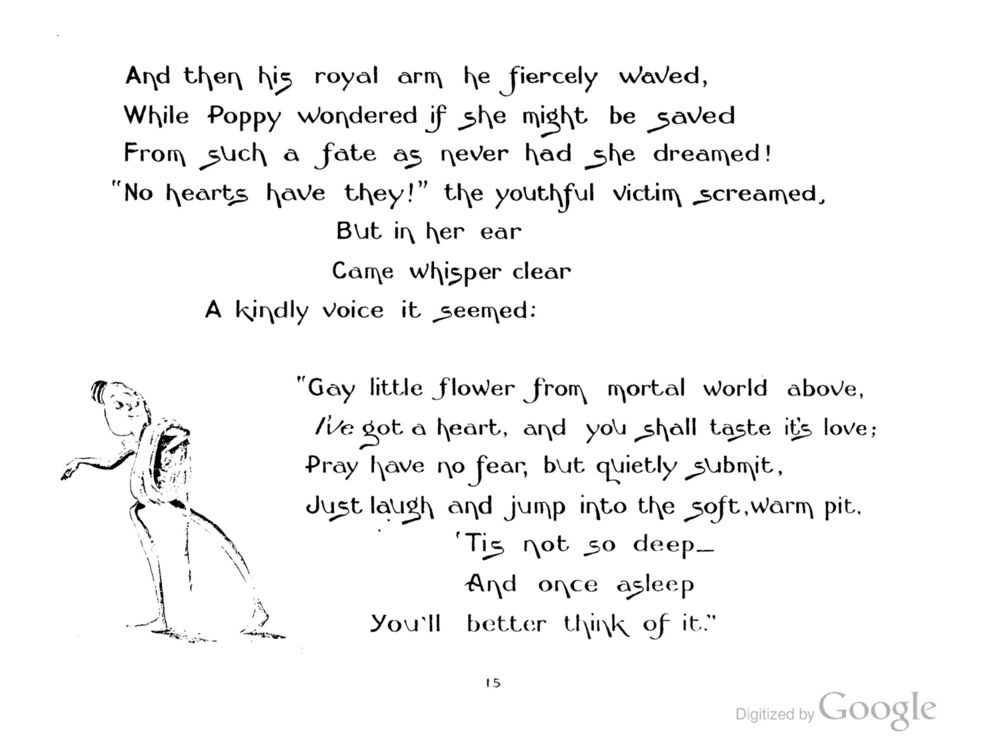 And then his royal arm he fiercely waved,
While Poppy wondered if she might be saved
From such a fate as never had she dreamed!
"No hearts have they!" the youthful victim screamed,
But in her ear
Came whisper clear
A kindly voice it seemed:
"Gay little flower from mortal world above,
I've got a heart, and you shall taste it's love;
Pray have no fear, but quietly submit,
Just laugh and jump into the soft, warm pit.
'Tis not so deep—
And once asleep
You'll better think of it."
15
Digitized by Google